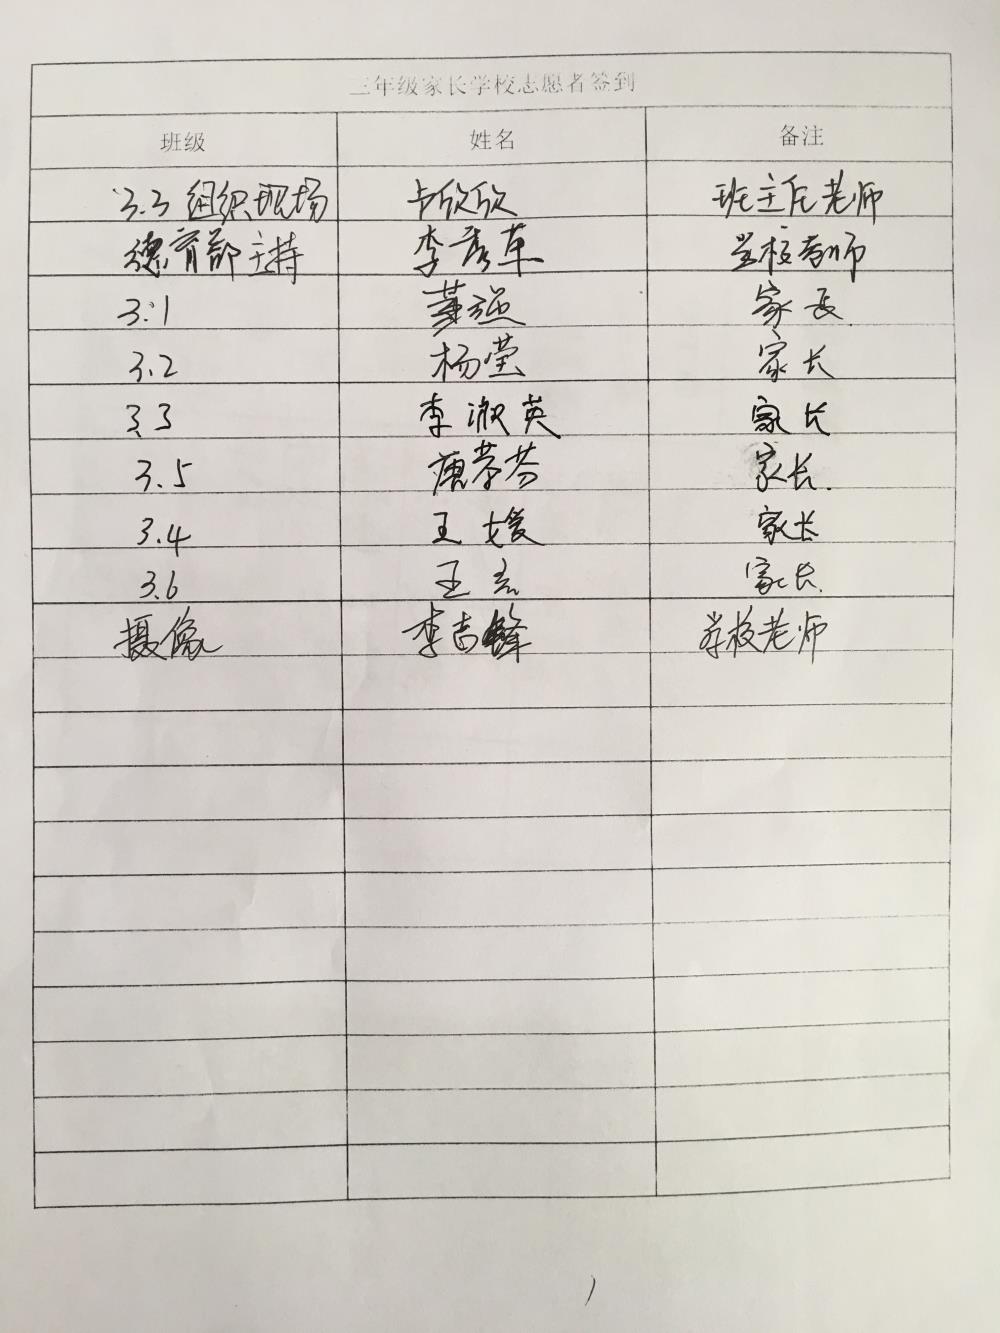 三年级家长学校志愿者签到
班级 姓名 备注
3.3组织现场 卢欣欣 班主任老师
德育部主持 李秀革 学校老师
3.1 董强 家長
3.2 杨莹 家长
3.3 李淑英 家长
3.5 唐翠芬 家长.
3.4 王媛 家长
3.6 王 家长.
摄像 李吉锋 学校老师